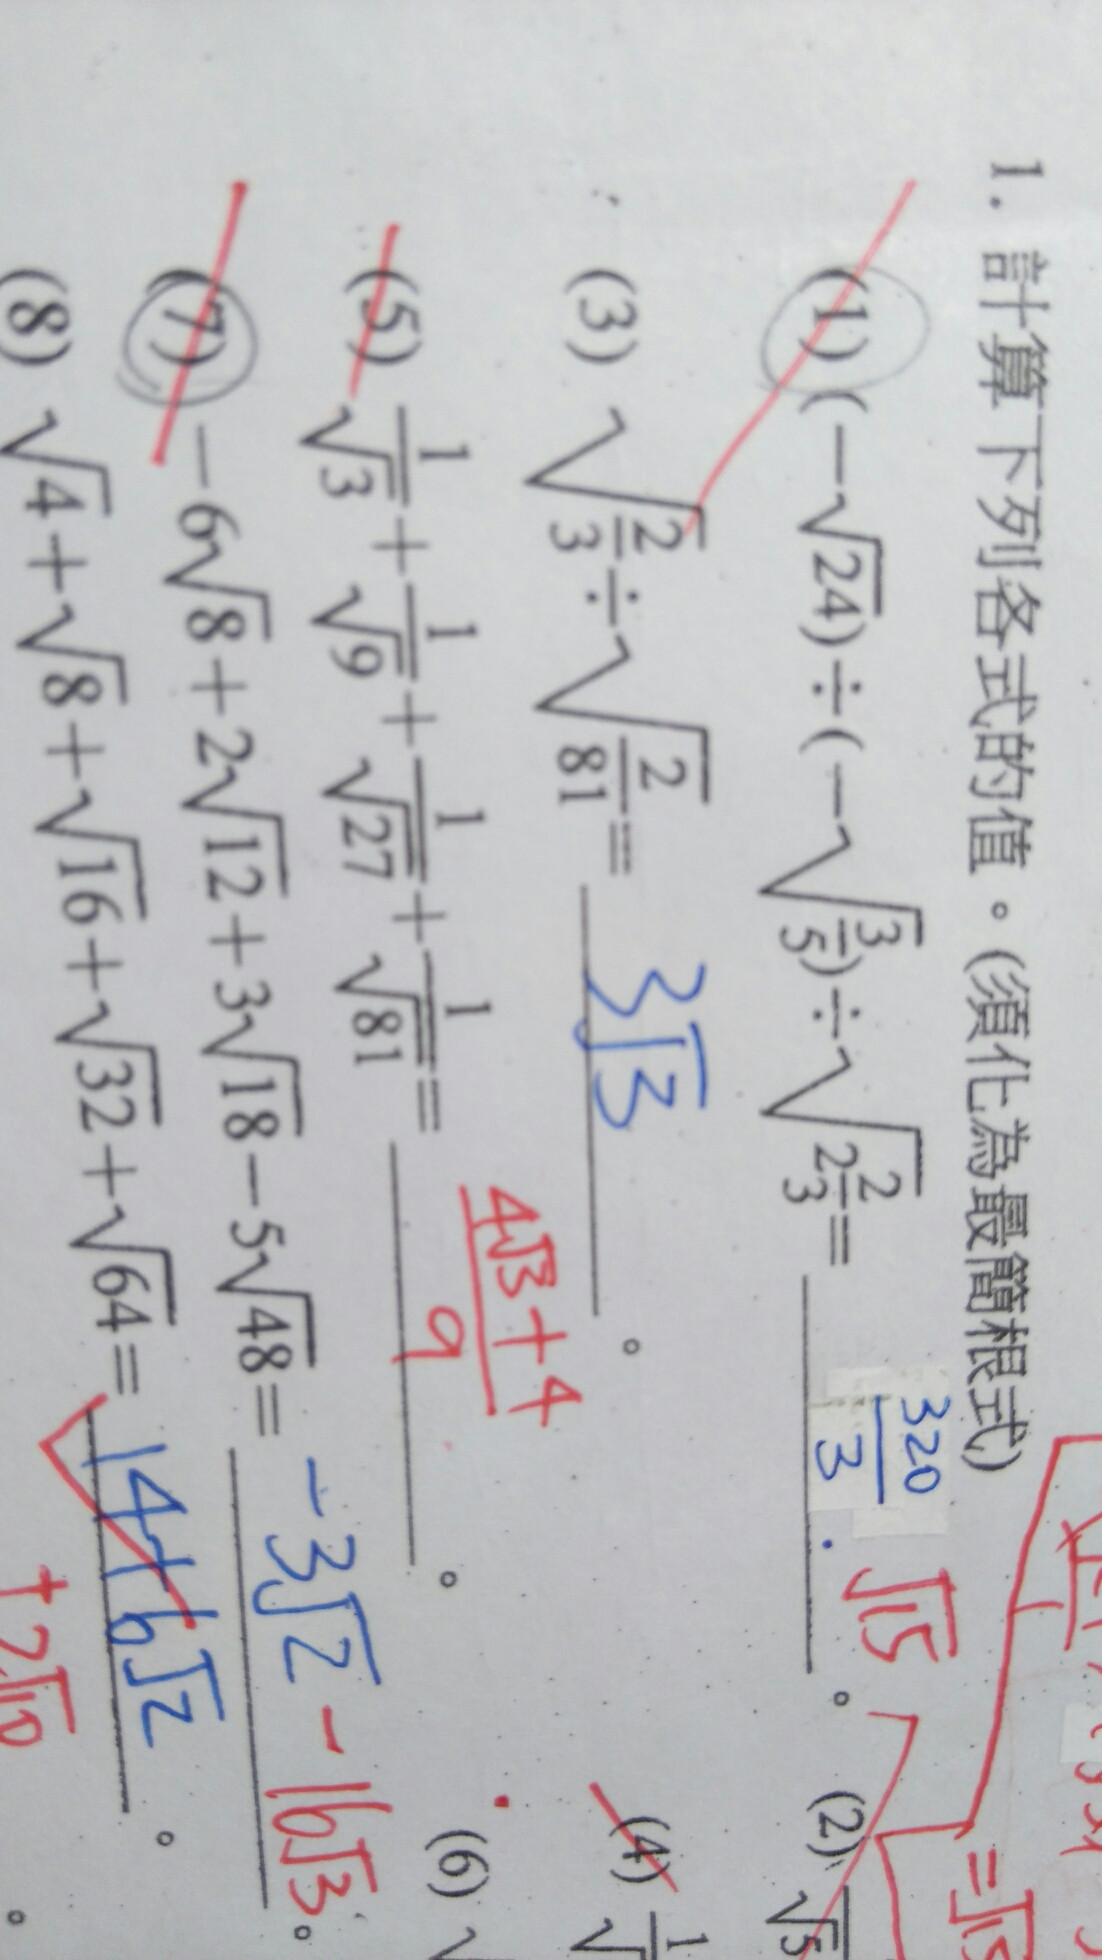 1. 計算下列各式的值。(須化為最簡根式)
(1) (-√24)÷(-√(3/5))÷√(2 2/3)= 320/3 . √15 。 (2) √5
(3) √(2/3)÷√(2/81)= 3√3 。 (4) 1/√
(5) 1/√3+1/√9+1/√27+1/√81= (4√3+4)/9 。 (6) √
(7) -6√8+2√12+3√18-5√48= -3√2 -16√3 。
(8) √4+√8+√16+√32+√64= 14+6√2 。
+2√10